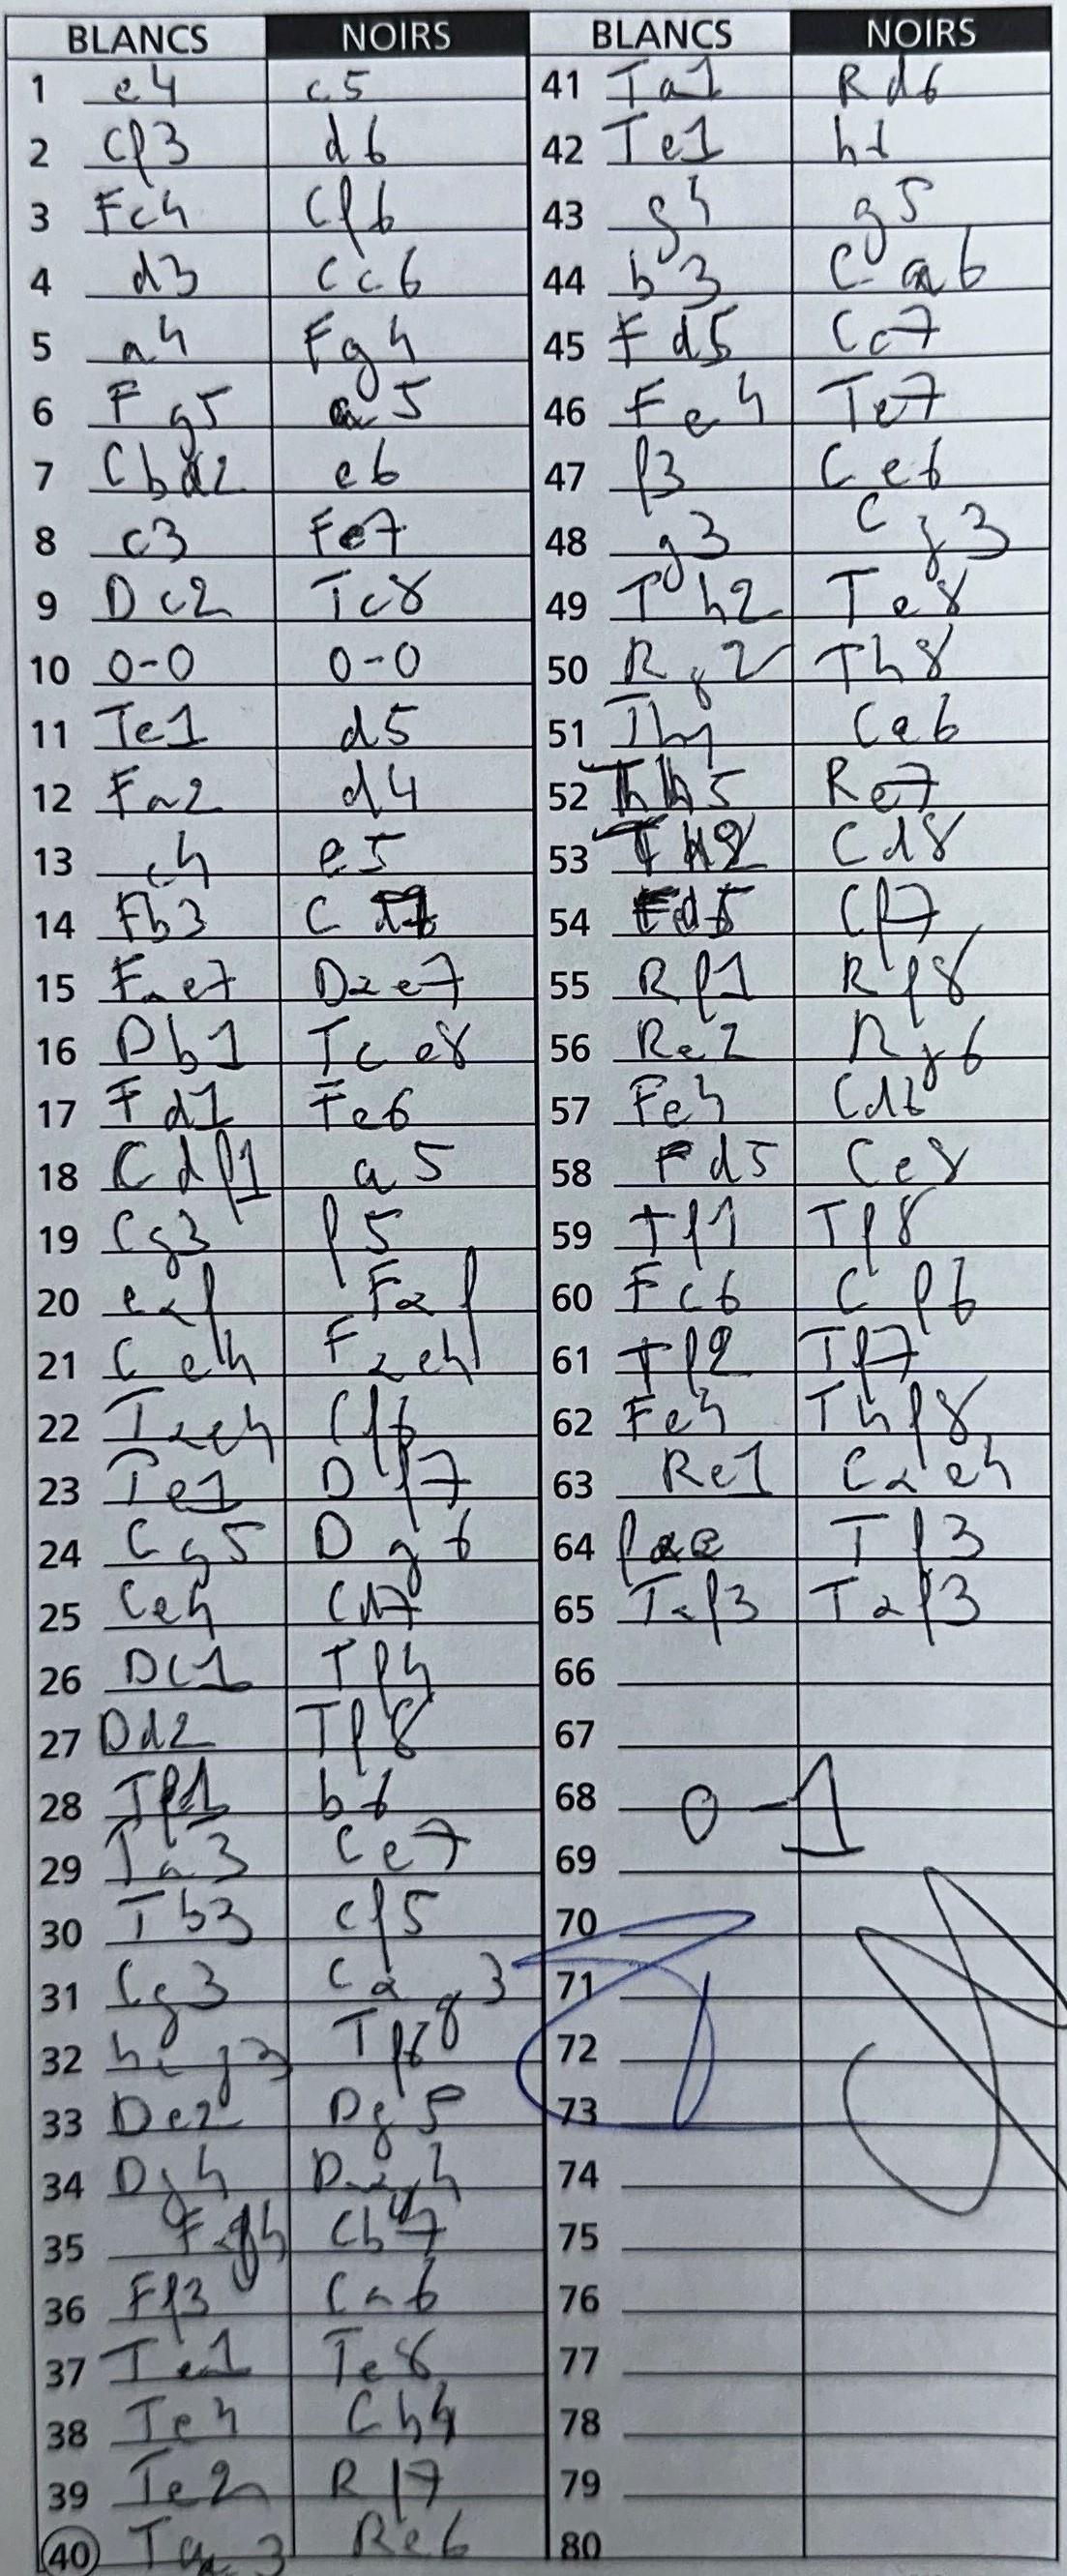 BLANCS NOIRS BLANCS NOIRS
1 e4 c5
2 Cf3 d6
3 Fc4 Cf6
4 d3 Cc6
5 a4 Fg4
6 Fg5 a5
7 Cbd2 e6
8 c3 Fe7
9 Dc2 Tc8
10 0-0 0-0
11 Te1 d5
12 Fa2 d4
13 c4 e5
14 Fb3 C
15 Fxe7 Dxe7
16 Db1 Tce8
17 Fd1 Fe6
18 Cdf1 a5
19 Cg3 f5
20 exf Fxf
21 Ce4 Fxe4
22 Txe4 Cf6
23 Te1 Df7
24 Cg5 Dg6
25 Ce4 Cd7
26 Dc1 Tf4
27 Dd2 Tf8
28 Tf1 b6
29 Ta3 Ce7
30 Tb3 Cf5
31 Cg3 Cxg3
32 hxg3 Tf8
33 De2 Dg5
34 Dg4 Dxg4
35 Fxg4 Cb7
36 Ff3 Ca6
37 Te1 Te8
38 Te4 Cb4
39 Te2 Rf7
40 Ta3 Re6
41 Ta1 Rd6
42 Te1 h6
43 g4 g5
44 b3 Ca6
45 Fd5 Cc7
46 Fe4 Te7
47 f3 Ce6
48 g3 Cg3
49 Th2 Te8
50 Rg2 Th8
51 Th1 Ce6
52 Th5 Re7
53 Th2 Cd8
54 Fd5 Cf7
55 Rf1 Rf8
56 Re2 Rg6
57 Fe4 Cd6
58 Fd5 Ce8
59 Tf1 Tf8
60 Fc6 Cf6
61 Tf2 Tf7
62 Fe4 Thf8
63 Re1 Cxe4
64 fxe Tf3
65 Txf3 Txf3
66
67
68 0-1
69
70
71
72
73
74
75
76
77
78
79
80